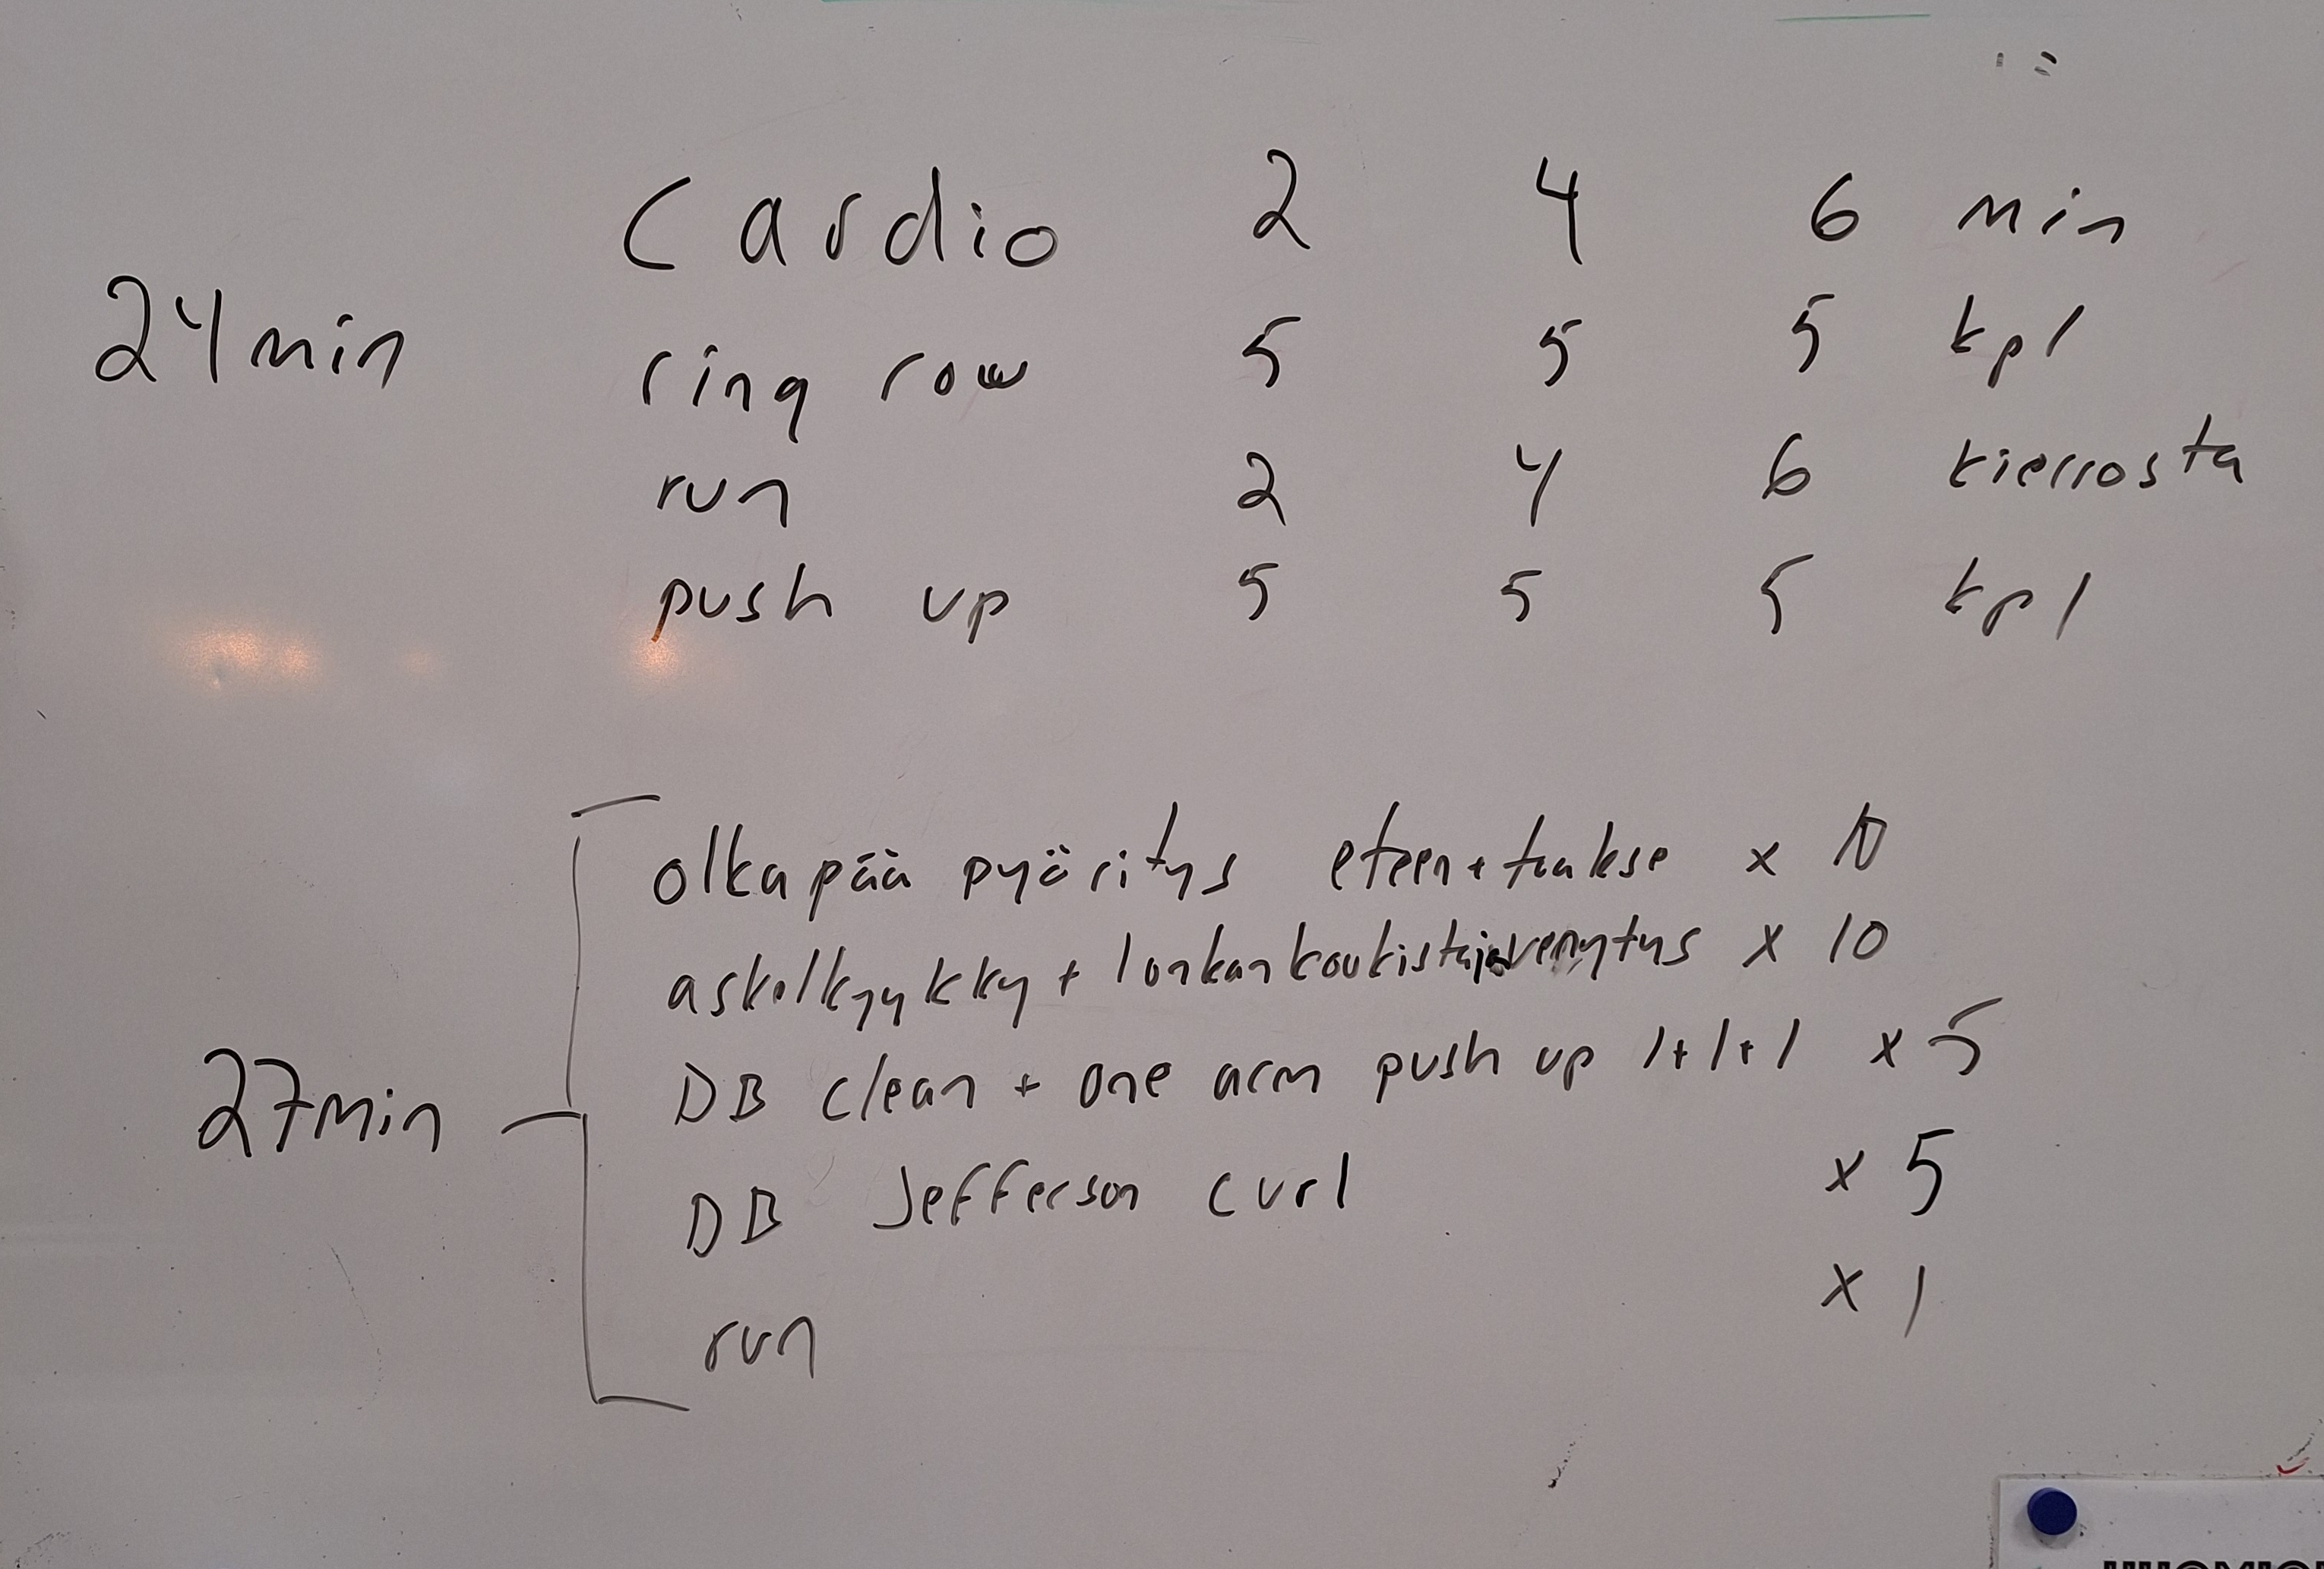 Cardio 2 4 6 min
24min
ring row 5 5 5 kpl
run 2 4 6 kierrosta
push up 5 5 5 kpl
olkapää pyöritys eteen + taakse x 10
askelkyykky + lonkankoukistajavenytys x 10
DB clean + one arm push up 1+1+1 x 5
27min
DB Jefferson curl x 5
run x 1